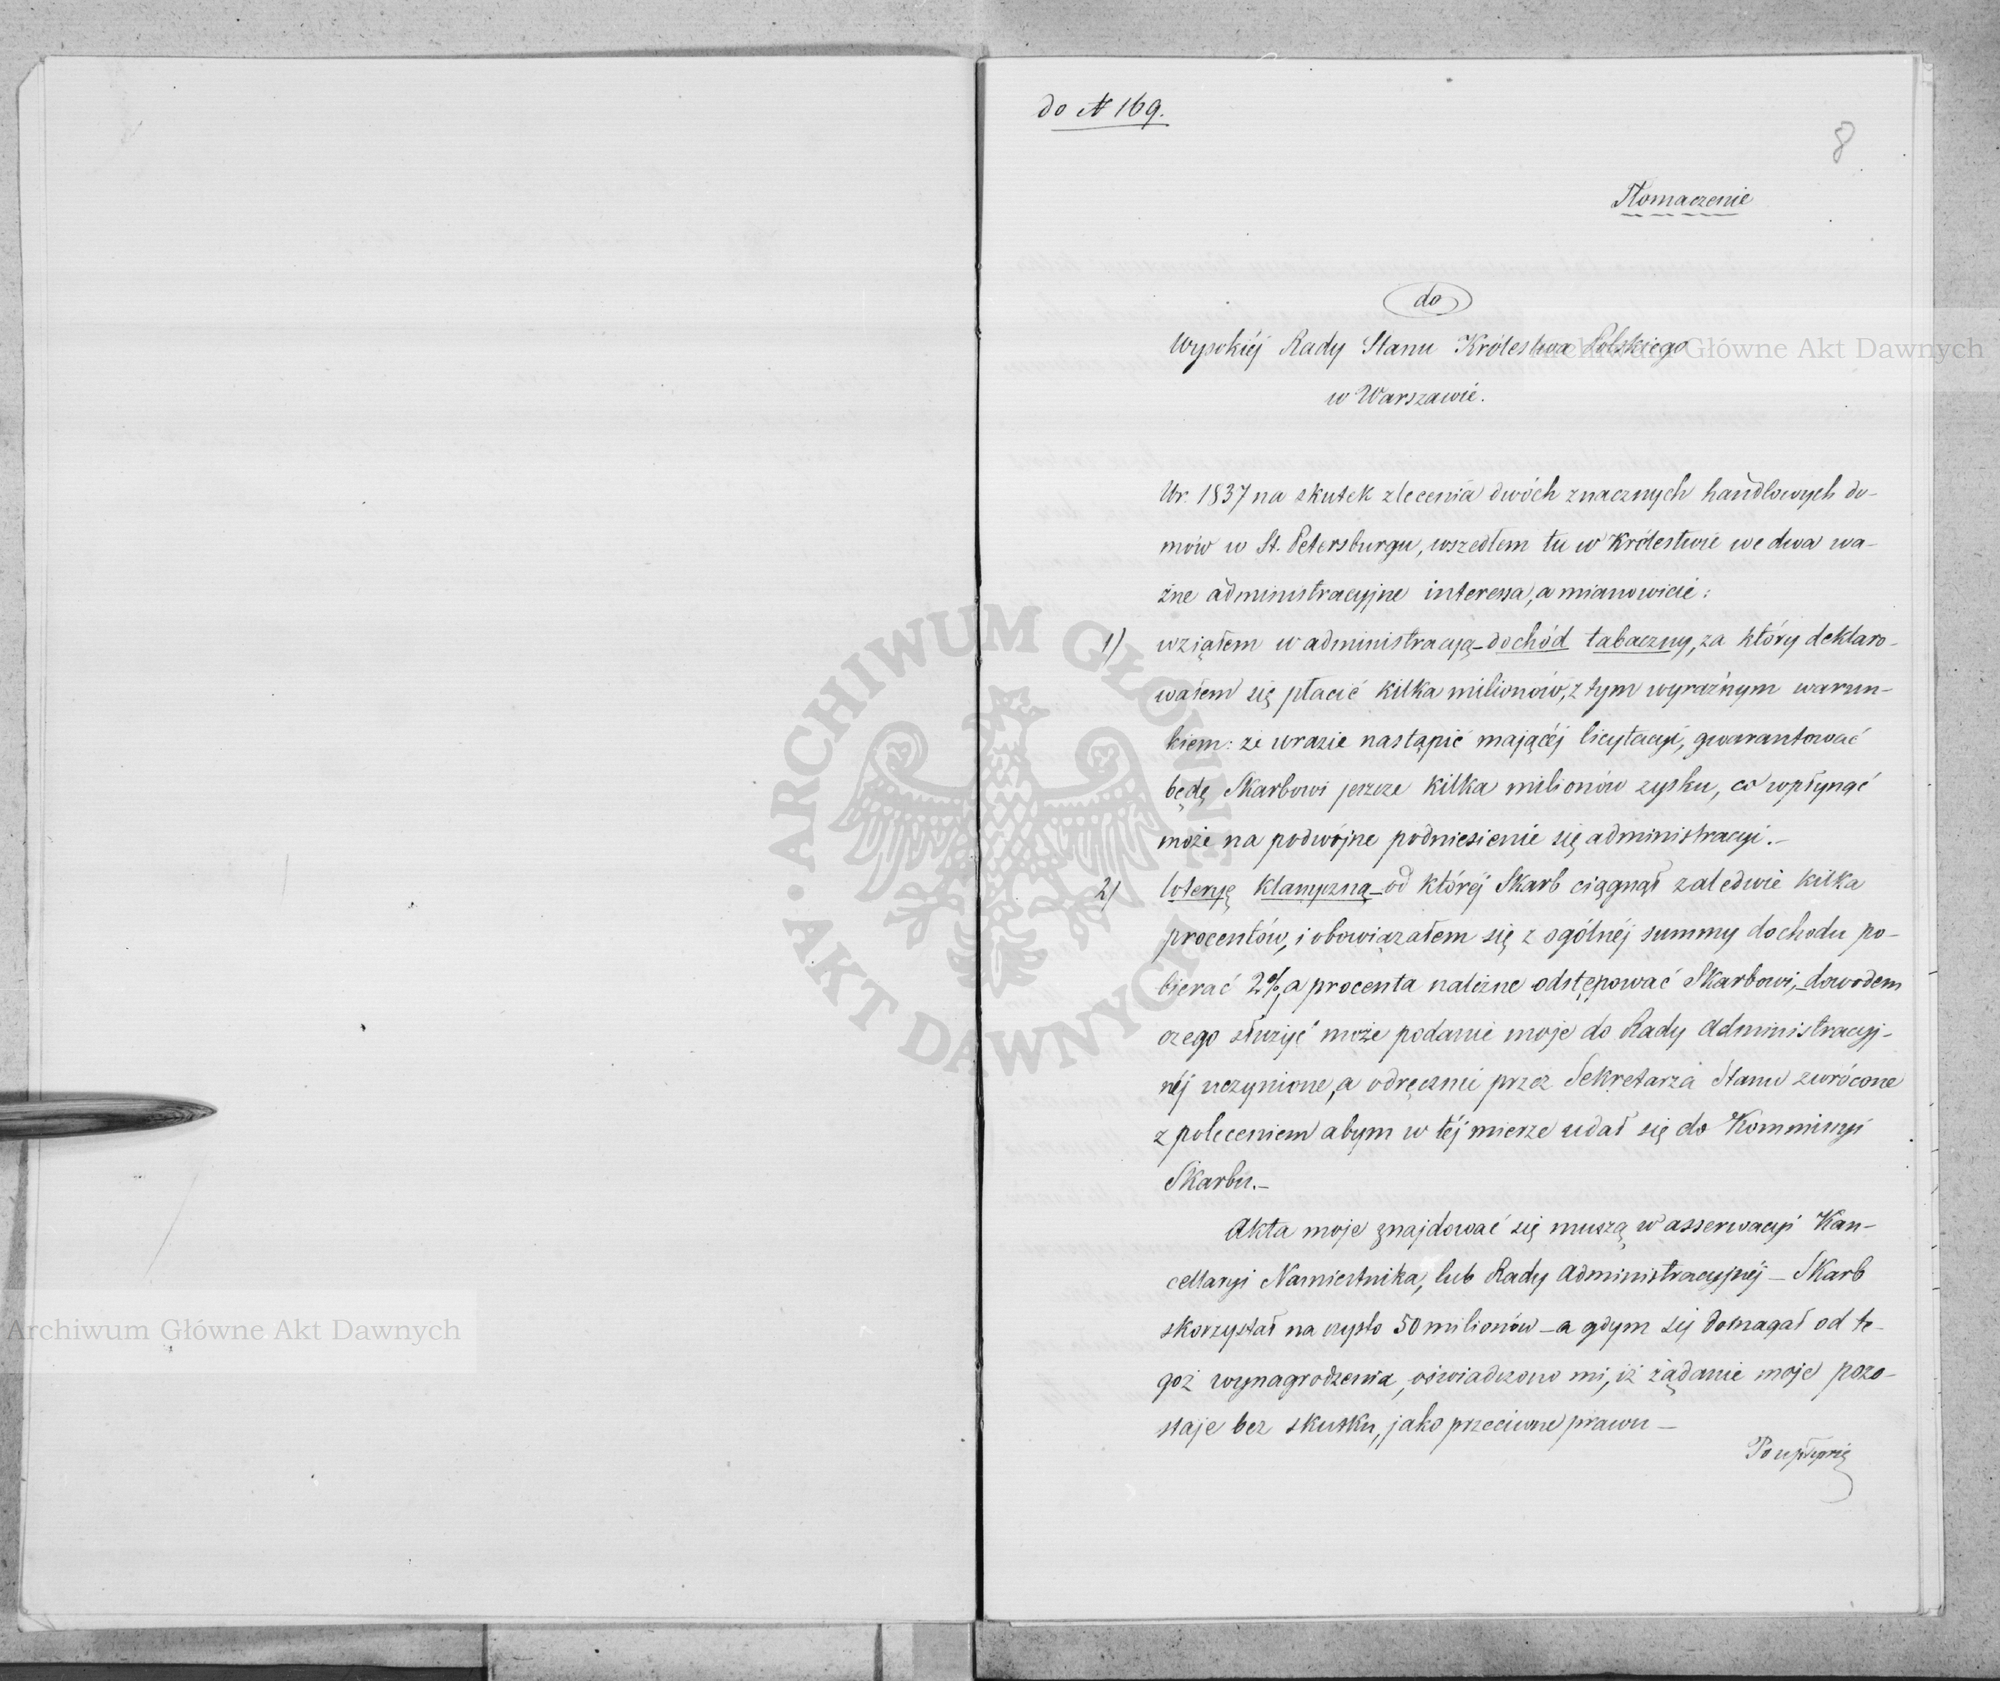 do № 169.
8
Tłomaczenie
do
Wysokiéj Rady Stanu Królestwa Polskiego
w Warszawie.
W r. 1837 na skutek zlecenia dwóch znacznych handlowych do-
mów w St. Petersburgu, wszedłem tu w Królestwie we dwa wa-
żne administracyjne interessa, a mianowicie:
1) wziąłem w administracyą dochód tabaczny, za który deklaro-
wałem się płacić kilka milionów, z tym wyraźnym warun-
kiem: że w razie nastąpić mającéj licytacyi, gwarantować
będę Skarbowi jeszcze kilka milionów zysku, co wpłynąć
może na podwójne podniesienie się administracyi.–
2) loteryę klassyczną – od któréj Skarb ciągnął zaledwie kilka
procentów, i obowiązałem się z ogólnéj summy dochodu po-
bierać 2%, a procenta należne odstępować Skarbowi, – dowodem
czego służyć może podanie moje do Rady Administracyj-
néj uczynione, a odręcznie przez Sekretarza Stanu zwrócone
z poleceniem abym w téj mierze udał się do Kommissyi
Skarbu.–
Akta moje znajdować się muszą w asserwacyi Kan-
cellaryi Namiestnika, lub Rady Administracyjnéj – Skarb
skorzystał na czysto 50 milionów – a gdym się domagał od te-
goż wynagrodzenia, oświadczono mi, iż żądanie moje pozo-
staje bez skutku, jako przeciwne prawu –
Po upływie
ARCHIWUM GŁÓWNE AKT DAWNYCH · A
Archiwum Główne Akt Dawnych
Archiwum Główne Akt Dawnych